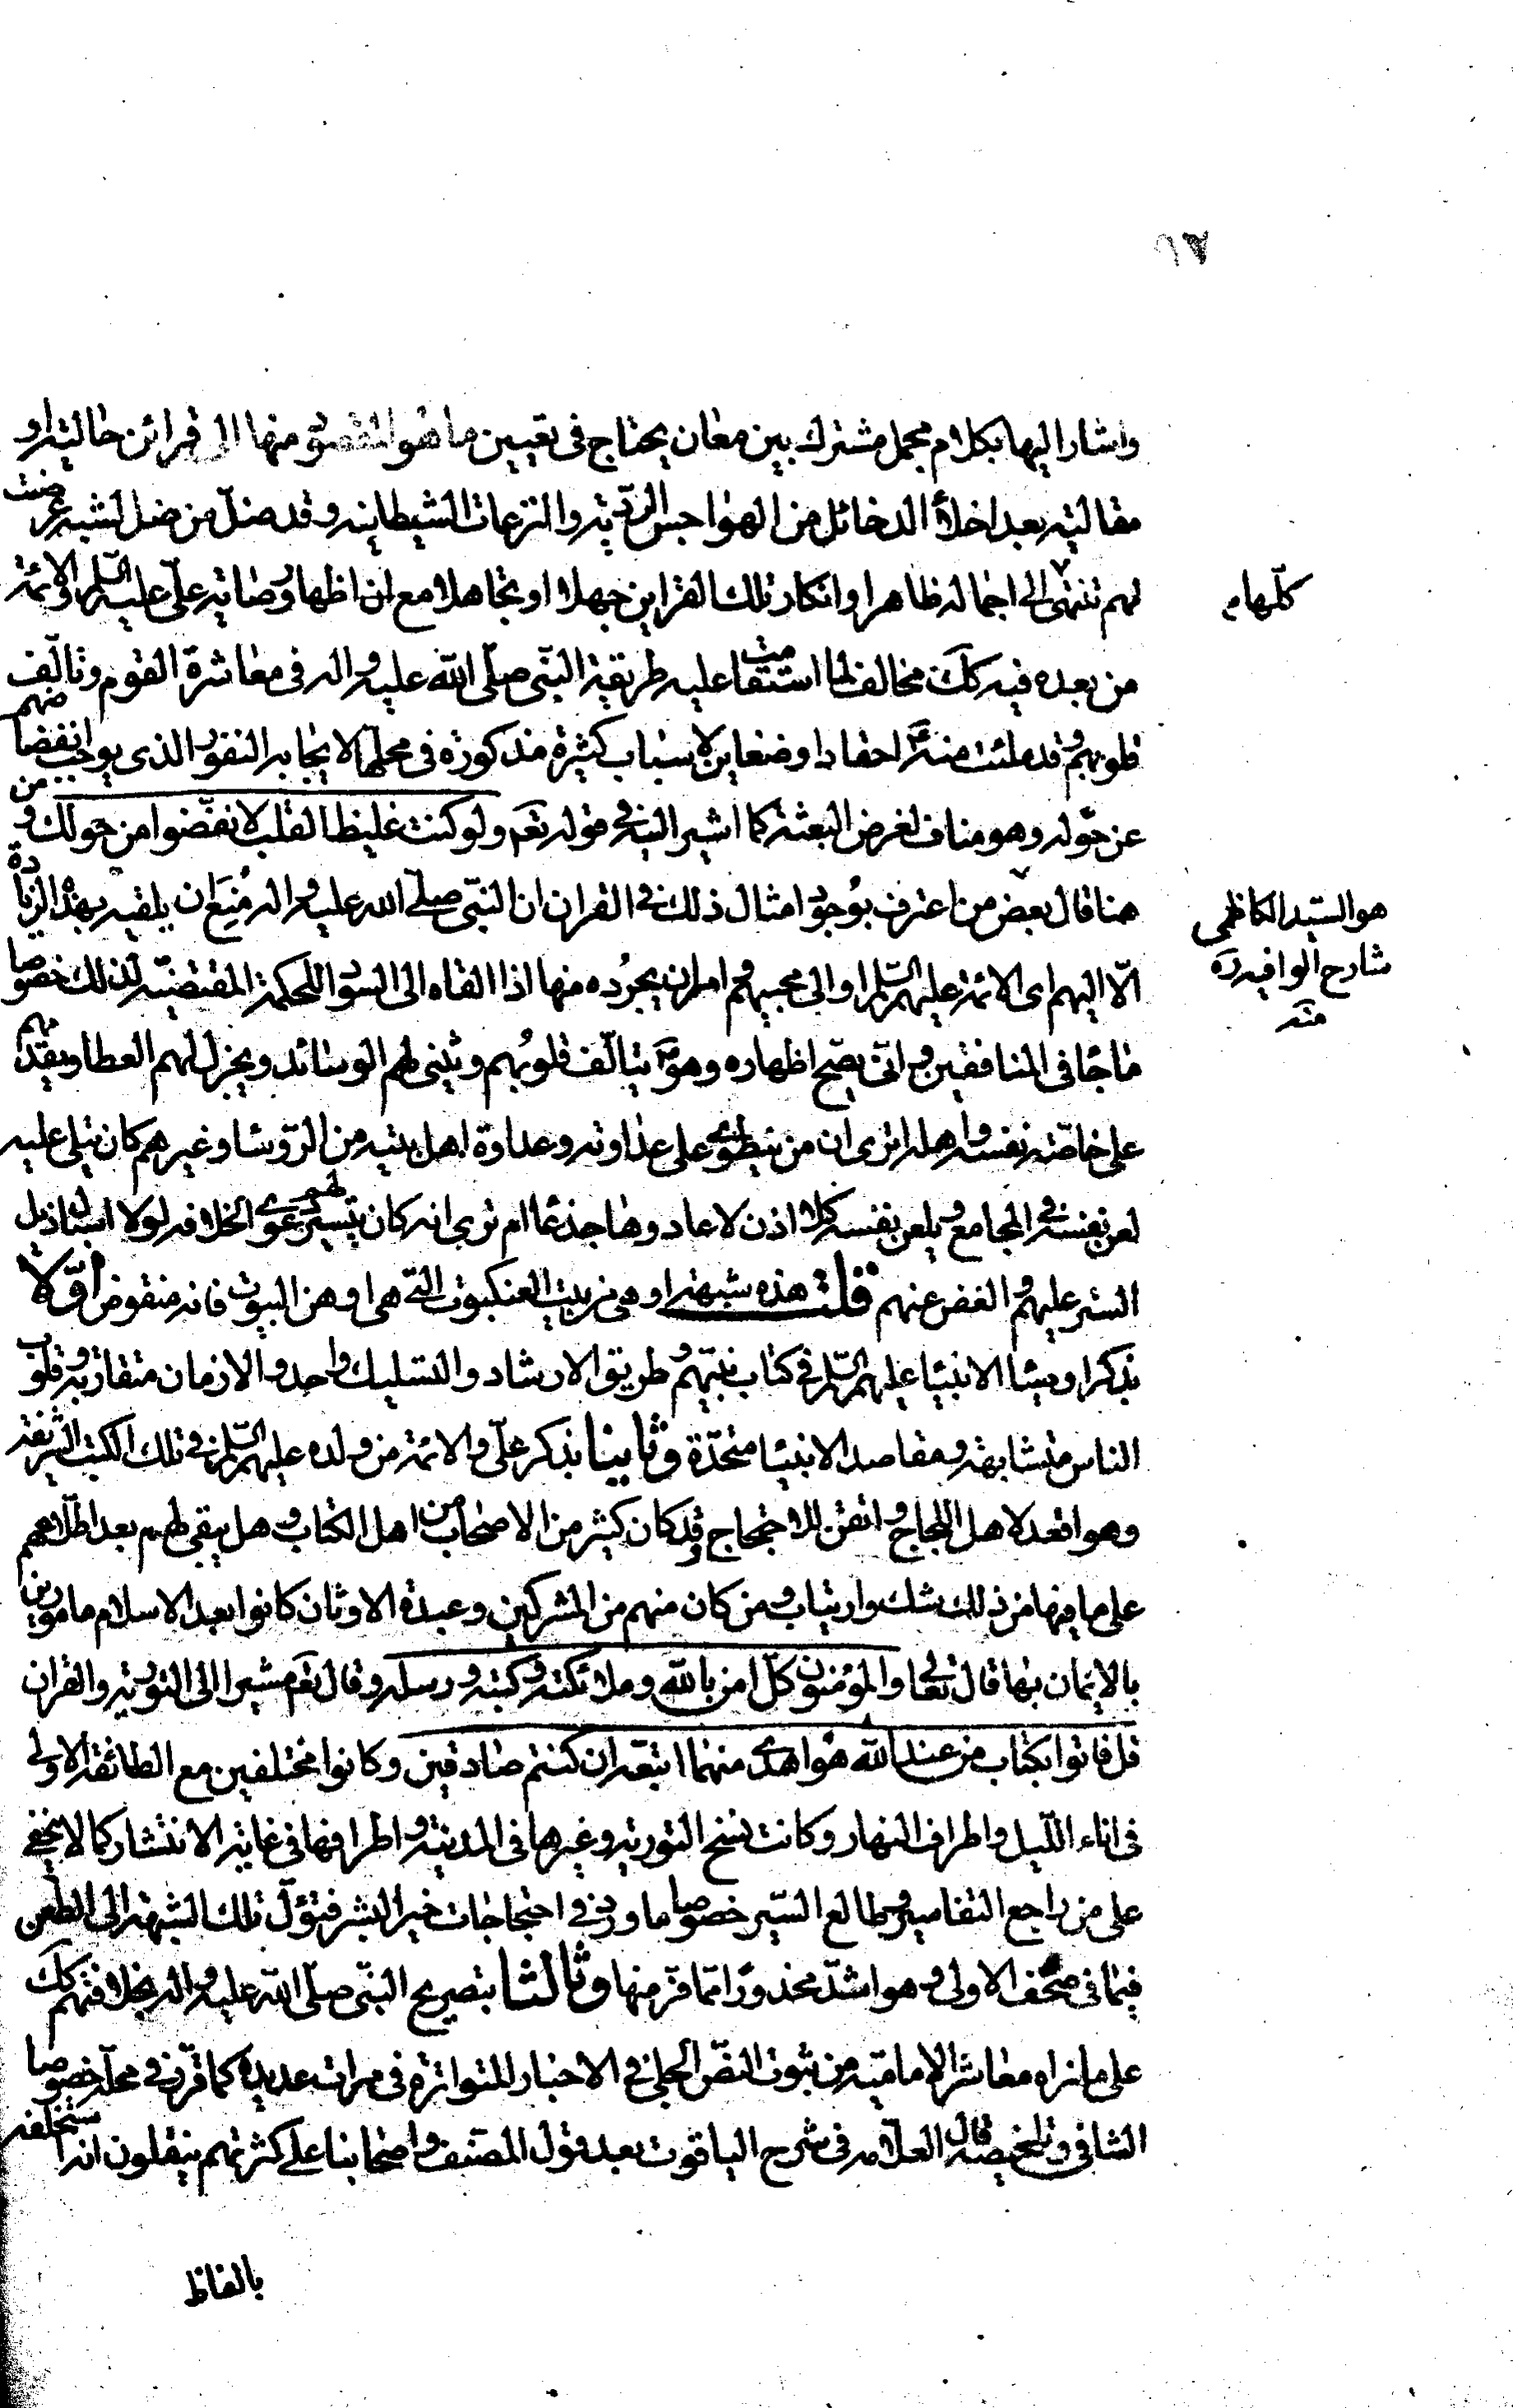 واشار اليها بكلام مجمل مشترك بين معان يحتاج فى تعيين ما هو المقصود منها الى قرائن حالية او
مقالية بعد اخلاء الدخائل من الهواجس الردّية والنزعات الشيطانية وقد ضلّ من ضل لشبه عرضت
لهم تنتهى الى اجماله ظاهرا وانكار تلك القراين جهلا او تجاهلا مع ان اظهار وصاية علىّ عليه السّلم والائمّة
كلّها م
من بعده فيه كك مخالف لما استقامت عليه طريقة النبّى صلّى اللّه عليه واله فى معاشرة القوم وتالّف
قلوبهم وقد ملئت منه احقادا وضغاين لاسباب كثيرة مذكورة فى محلّها لايجابه النفور الذى يوجب انفضاضهم
عن حوله وهو مناف لغرض البعثة كما اشير اليه فى قوله تعم ولو كنت غليظ القلب لانفضّوا من حولك ومن
هنا قال بعض من اعترف بوجود امثال ذلك فى القران ان النبّى صلّى الله عليه واله مُنِعَ ان يلقيه بهذه الزيادة
هو السّيد الكاظمى
شارح الوافيه ره
منه
الّا اليهم اى الائمّة عليهم السّلم او الى محبيهم وامر ان يجرّده منها اذا القاه الى السواد للحكمة المقتضيّة لذلك خصوصا
ما جاء فى المنافقين وانّى يصحّ اظهاره وهو يتالّف قلوبُهم ويثنى لهم الوسائد ويجزل لهم العطا ويقدّمهم
على خاصّة نفسه واهله اترى ان من ينطوى على عداوته وعداوة اهل بيته من الرّوسا وغيرهم كان يتلى عليه
لعن نفسه فى المجامع ويلعن نفسه كلا اذن لاعادوها جذعا ام ترى انه كان يتسير لهم دعوى الخلافه لولا اسبال ذيل
الستر عليهم والغض عنهم قلت هذه شبهة اوهى من بيت العنكبوت التى هى اوهن البيوت فانه منقوض اوّلا
بذكر اوصياء الانبياء عليهم السّلم فى كتاب نبيّهم وطريق الارشاد والتسليك واحد والازمان متقاربة وقلوب
الناس متشابهة ومقاصد الانبياء متحدّة وثانيا بذكر علّى والائمّة من ولده عليهم السّلم فى تلك الكتب الشريفة
وهو اقعد لاهل اللجاج واتقن للاحتجاج وقد كان كثير من الاصحاب من اهل الكتاب وهل يبقى لهم بعد اطّلاعهم
على ما فيها من ذلك شك وارتياب ومن كان منهم من المشركين وعبدة الاوثان كانوا بعد الاسلام مامورين
بالايمان بها قال تعالى والمؤمنون كلّ امن باللّه وملائكته وكتبه ورسله وقال تعم مشيرا الى التورية والقران
قل فاتوا بكتاب من عند اللّه هو اهدى منهما اتبعه ان كنتم صادقين وكانوا مختلفين مع الطائفة الاولى
فى اناء اللّيل واطراف النهار وكانت نسخ التورية وغيرها فى المدينة واطرافها فى غاية الانتشار كما لا يخفى
على من راجع التفاسير وطالع السّير خصوصا ما ورد فى احتجاجات خير البشر فتؤل تلك الشبهة الى الطعن
فيما فى صحف الاولى وهو اشدّ محذورًا ممّا فرّ منها وثالثا بتصريح النبّى صلّى اللّه عليه واله بخلافتهم كك
على ما نراه معاشر الامامّية من ثبوت النصّ الجلىّ فى الاخبار المتواترة فى مرات عديدة كما قرّر فى محلّه خصوصا
الشافى وتلخيصه قال العلّامه فى شرح الياقوت بعد قول المصنّف واصحابنا على كثرتهم ينقلون انه استخلفه
بالفاظ